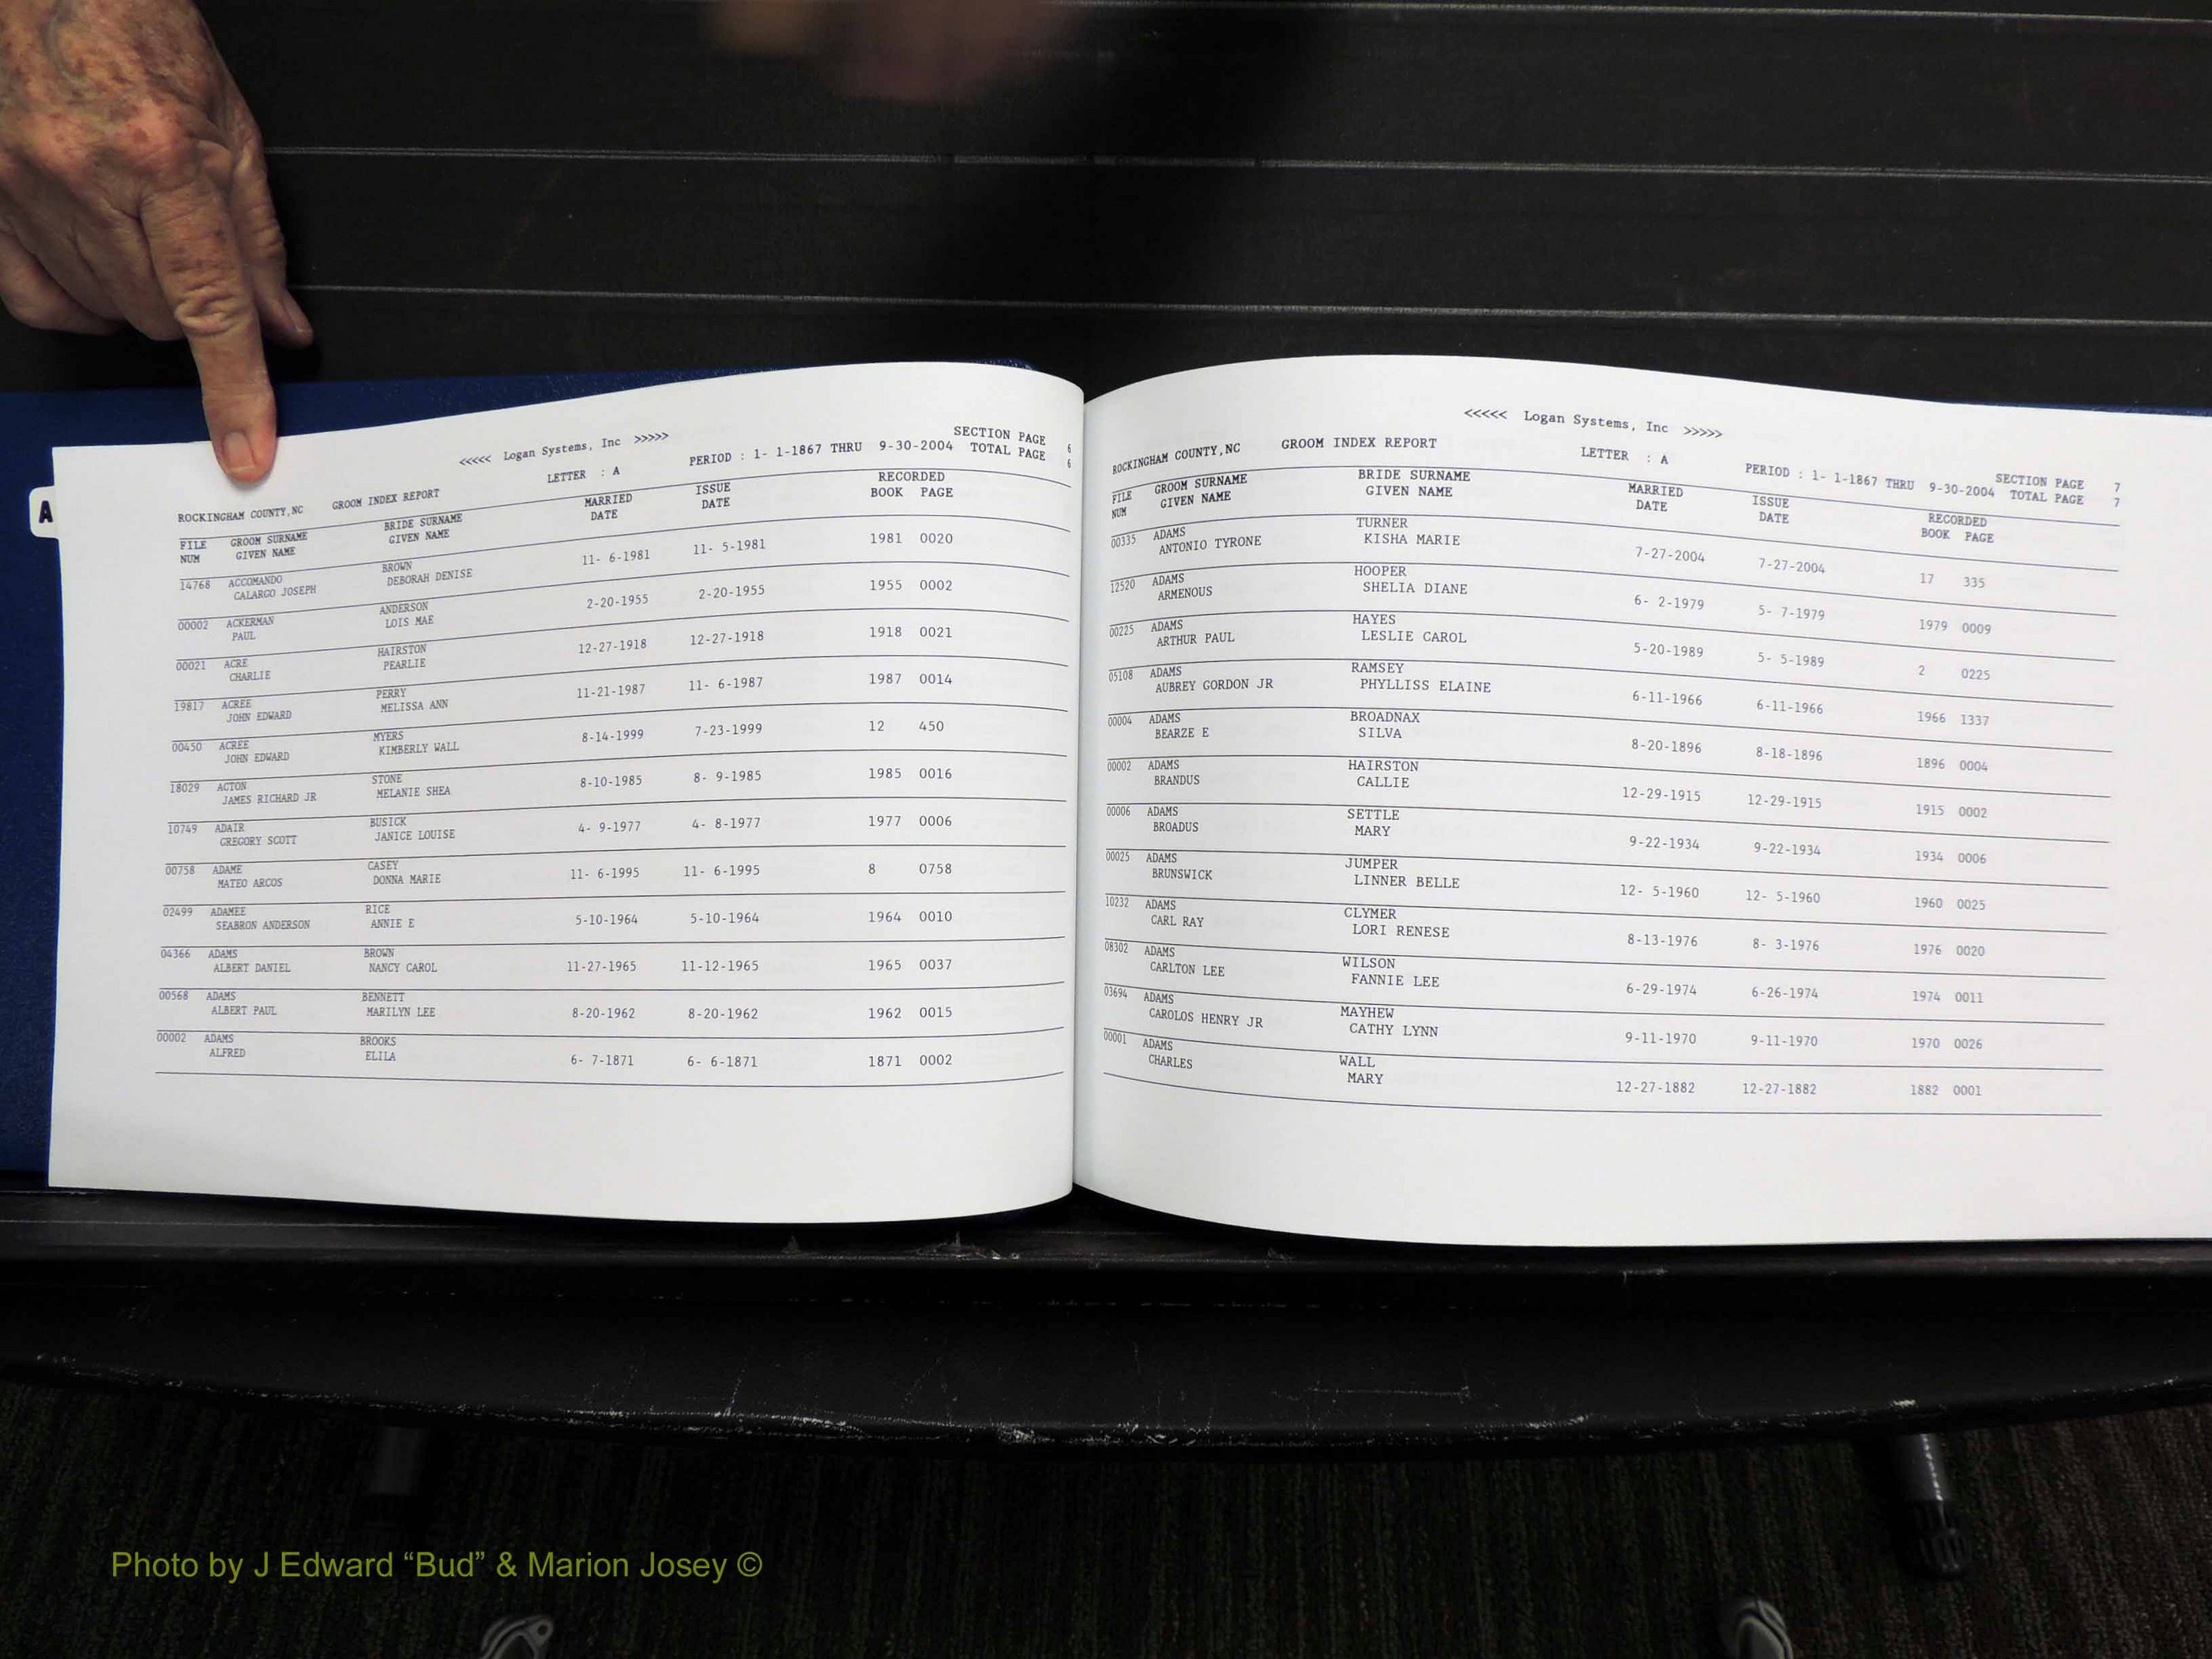 A
<<<<< Logan Systems, Inc >>>>>
SECTION PAGE 6
ROCKINGHAM COUNTY,NC GROOM INDEX REPORT LETTER : A PERIOD : 1- 1-1867 THRU 9-30-2004 TOTAL PAGE 6
FILE GROOM SURNAME BRIDE SURNAME MARRIED ISSUE RECORDED
NUM GIVEN NAME GIVEN NAME DATE DATE BOOK PAGE
14768 ACCOMANDO BROWN 11- 6-1981 11- 5-1981 1981 0020
CALARGO JOSEPH DEBORAH DENISE
00002 ACKERMAN ANDERSON 2-20-1955 2-20-1955 1955 0002
PAUL LOIS MAE
00021 ACRE HAIRSTON 12-27-1918 12-27-1918 1918 0021
CHARLIE PEARLIE
19817 ACREE PERRY 11-21-1987 11- 6-1987 1987 0014
JOHN EDWARD MELISSA ANN
00450 ACREE MYERS 8-14-1999 7-23-1999 12 450
JOHN EDWARD KIMBERLY WALL
18029 ACTON STONE 8-10-1985 8- 9-1985 1985 0016
JAMES RICHARD JR MELANIE SHEA
10749 ADAIR BUSICK 4- 9-1977 4- 8-1977 1977 0006
GREGORY SCOTT JANICE LOUISE
00758 ADAME CASEY 11- 6-1995 11- 6-1995 8 0758
MATEO ARCOS DONNA MARIE
02499 ADAMEE RICE 5-10-1964 5-10-1964 1964 0010
SEABRON ANDERSON ANNIE E
04366 ADAMS BROWN 11-27-1965 11-12-1965 1965 0037
ALBERT DANIEL NANCY CAROL
00568 ADAMS BENNETT 8-20-1962 8-20-1962 1962 0015
ALBERT PAUL MARILYN LEE
00002 ADAMS BROOKS 6- 7-1871 6- 6-1871 1871 0002
ALFRED ELILA
<<<<< Logan Systems, Inc >>>>>
SECTION PAGE 7
ROCKINGHAM COUNTY,NC GROOM INDEX REPORT LETTER : A PERIOD : 1- 1-1867 THRU 9-30-2004 TOTAL PAGE 7
FILE GROOM SURNAME BRIDE SURNAME MARRIED ISSUE RECORDED
NUM GIVEN NAME GIVEN NAME DATE DATE BOOK PAGE
00335 ADAMS TURNER 7-27-2004 7-27-2004 17 335
ANTONIO TYRONE KISHA MARIE
12520 ADAMS HOOPER 6- 2-1979 5- 7-1979 1979 0009
ARMENOUS SHELIA DIANE
00225 ADAMS HAYES 5-20-1989 5- 5-1989 2 0225
ARTHUR PAUL LESLIE CAROL
05108 ADAMS RAMSEY 6-11-1966 6-11-1966 1966 1337
AUBREY GORDON JR PHYLLISS ELAINE
00004 ADAMS BROADNAX 8-20-1896 8-18-1896 1896 0004
BEARZE E SILVA
00002 ADAMS HAIRSTON 12-29-1915 12-29-1915 1915 0002
BRANDUS CALLIE
00006 ADAMS SETTLE 9-22-1934 9-22-1934 1934 0006
BROADUS MARY
00025 ADAMS JUMPER 12- 5-1960 12- 5-1960 1960 0025
BRUNSWICK LINNER BELLE
10232 ADAMS CLYMER 8-13-1976 8- 3-1976 1976 0020
CARL RAY LORI RENESE
08302 ADAMS WILSON 6-29-1974 6-26-1974 1974 0011
CARLTON LEE FANNIE LEE
03694 ADAMS MAYHEW 9-11-1970 9-11-1970 1970 0026
CAROLOS HENRY JR CATHY LYNN
00001 ADAMS WALL 12-27-1882 12-27-1882 1882 0001
CHARLES MARY
Photo by J Edward “Bud” & Marion Josey ©